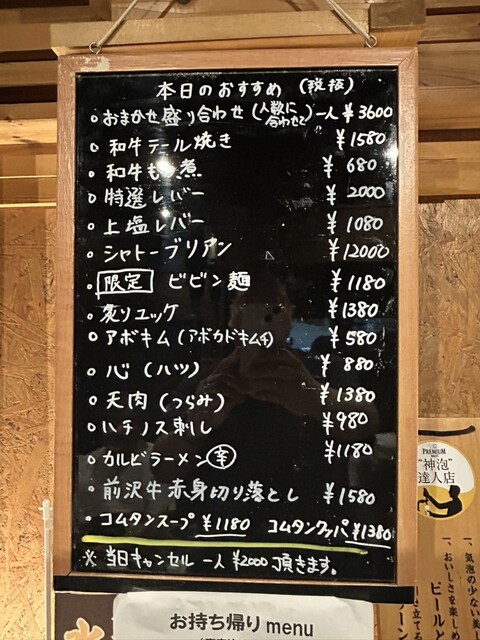 本日のおすすめ (税抜)
おまかせ盛り合わせ(人数に合わせて)一人 ¥3600
和牛テール焼き ¥1580
和牛もつ煮 ¥680
特選レバー ¥2000
上塩レバー ¥1080
シャトーブリアン ¥12000
限定 ビビン麺 ¥1180
炙りユッケ ¥1380
アボキム(アボカドキムチ) ¥580
心(ハツ) ¥880
天肉(つらみ) ¥1380
ハチノス刺し ¥980
カルビラーメン辛 ¥1180
前沢牛赤身切り落とし ¥1580
コムタンスープ ¥1180 コムタンクッパ ¥1380
※当日キャンセル 一人 ¥2000 頂きます。
お持ち帰り menu
PREMIUM
"神泡"
達人店
一、気泡の少ない美し
一、おいしさを楽しめ
ビールと